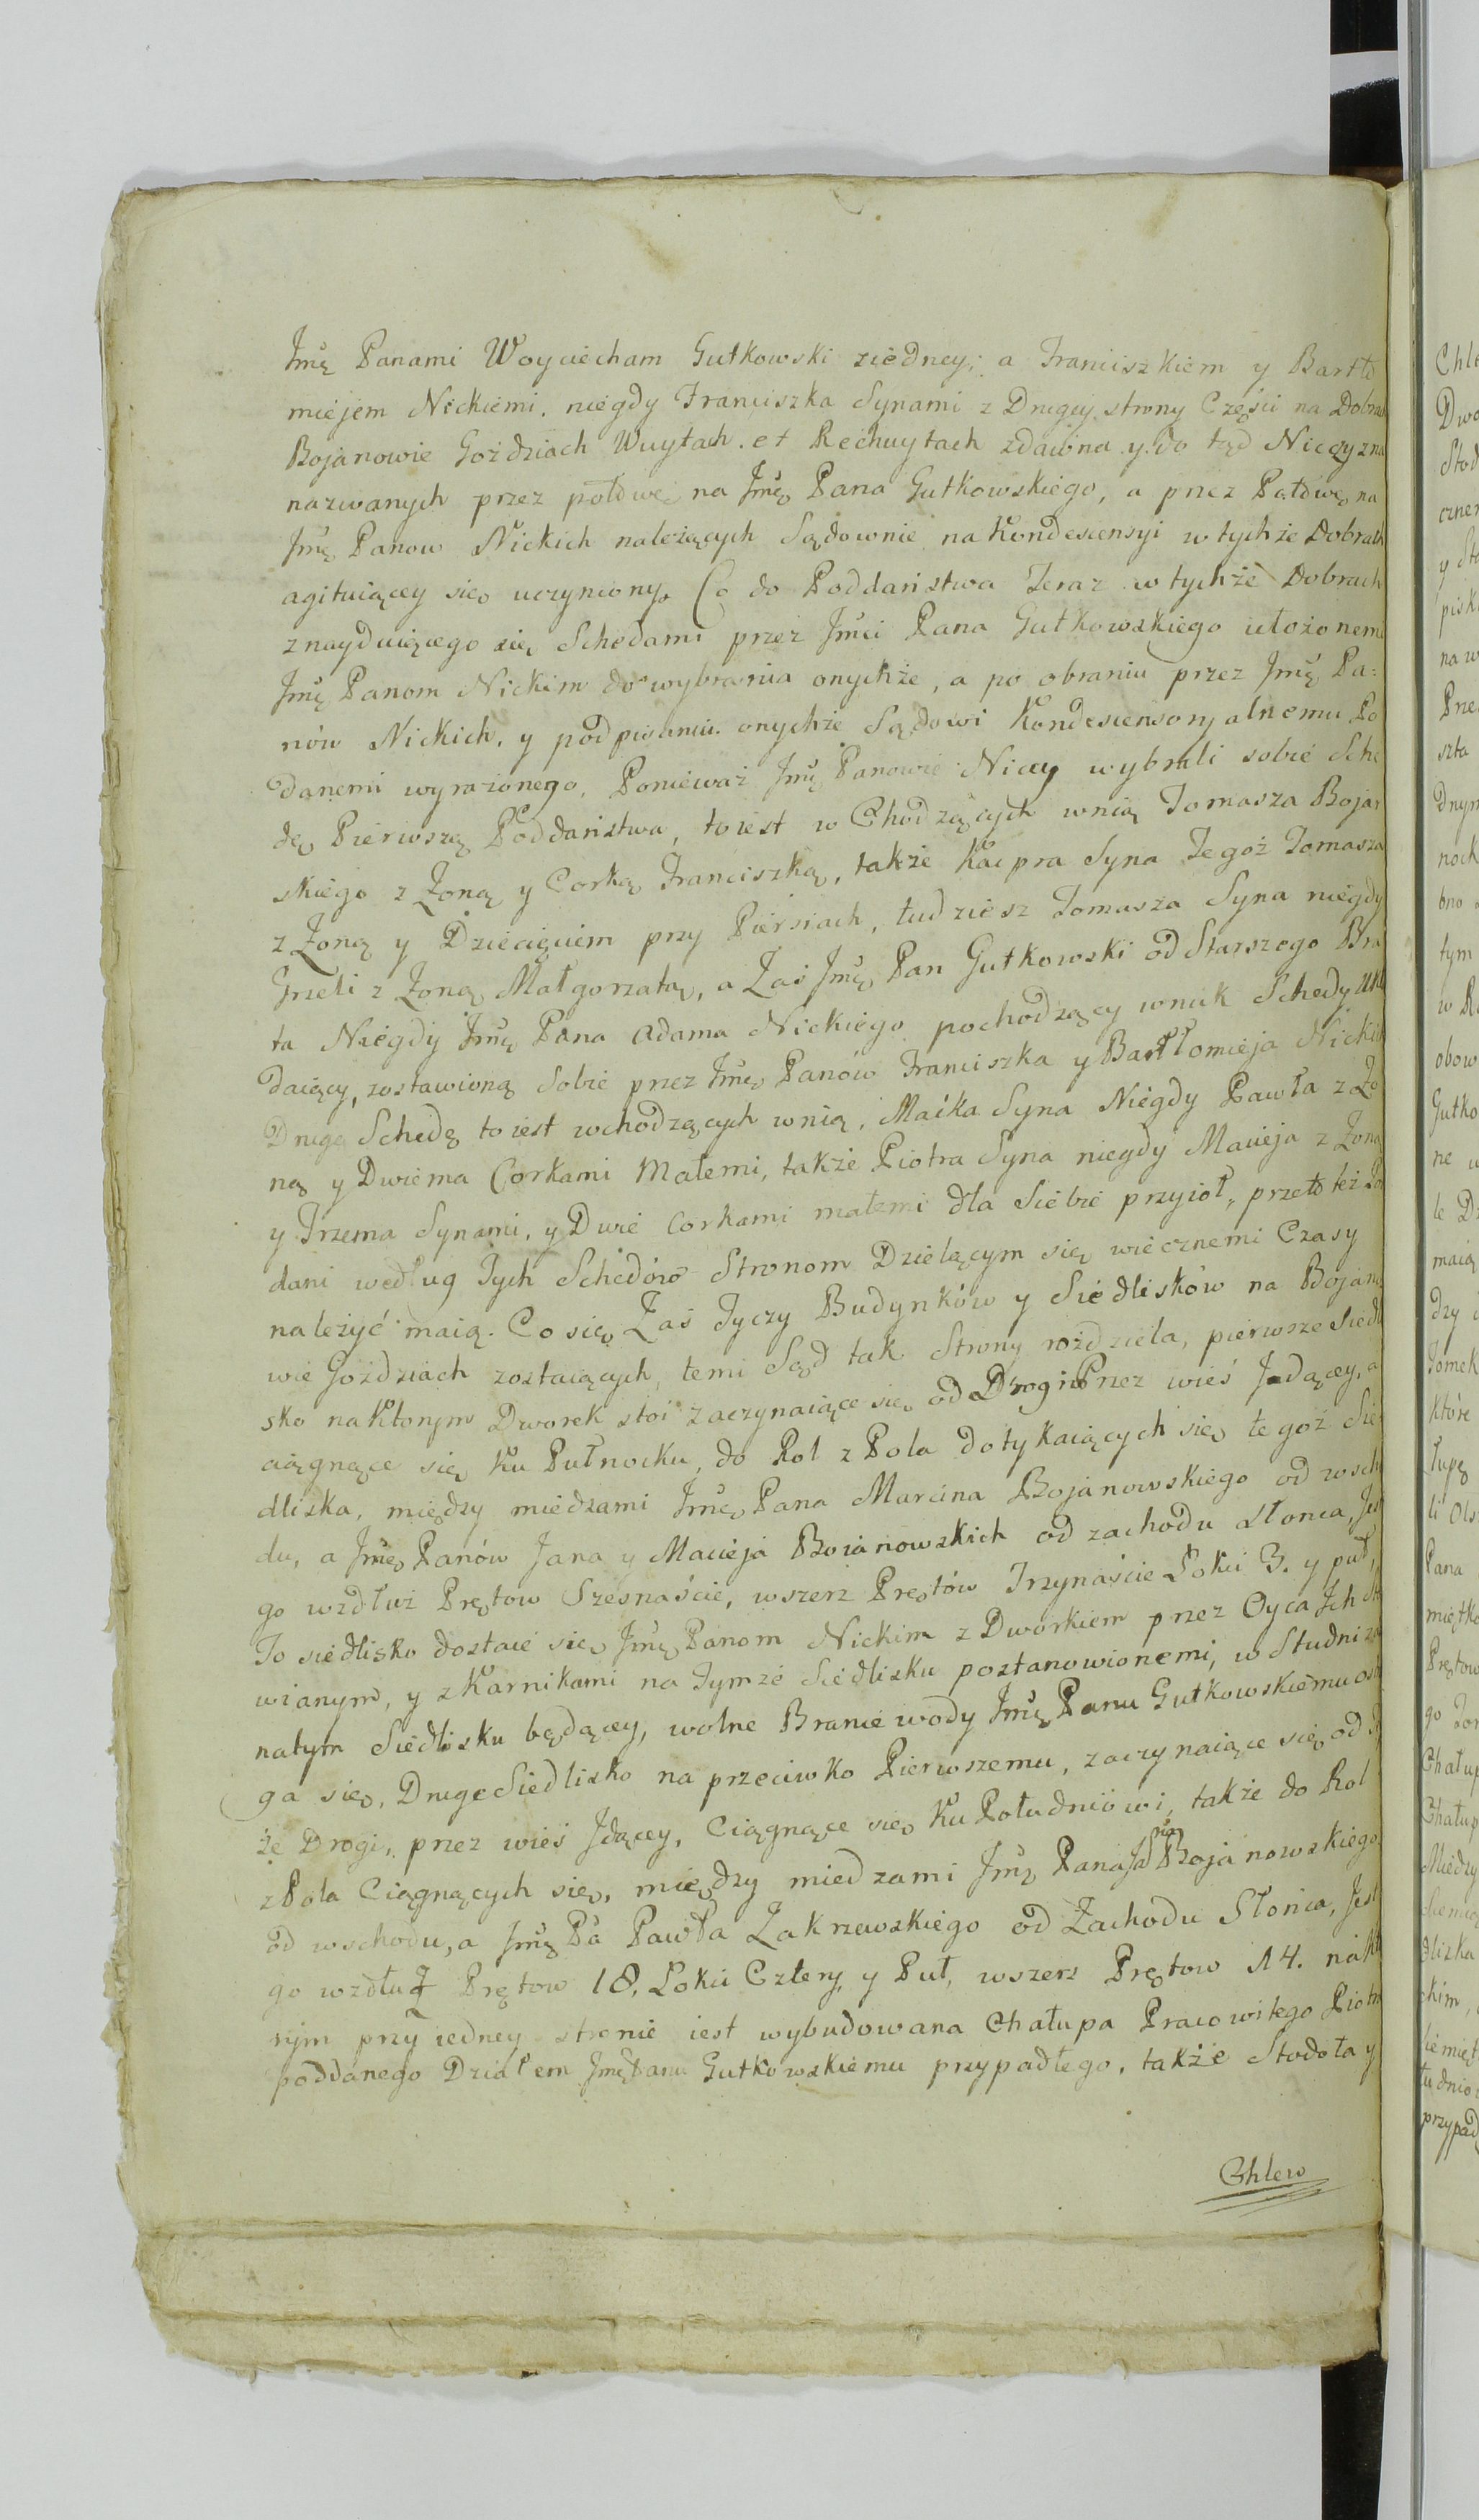 Jmę Panami Woyciecham Gutkowski ziedney, a Franciszkiem y Bartło
miejem Nickiemi, niegdy Franciszka Synami z Drugiy strony Części na Dobrach
Bojanowie Goździach Wuytach. et Rechwytach zdawna y do tąd Niczyzna
nazwanych przez połowę na Jmę Pana Gutkowskiego, a przez Połowę na
Jmę Panow Nickich należących Sądownie na Kondescensyi w tychże Dobrach
agituiącey się uczyniony. Co do Poddaństwa Teraz w tychże Dobrach
znayduiącego się Schedami przez Jmci Pana Gutkowskiego ułożonemi
Jmę Panom Nickim do wybrania onychże, a po obraniu przez Jmę Pa=
nów Nickich, y podpisaniu onychże Sądowi Kondescensoryalnemu Po
danemi wyrażonego, Ponieważ Jmę Panowie Niccy wybrali sobie Sche
dę Pierwszą Poddaństwa, to iest w Chodzących wnią Tomasza Bojar
skiego z Żoną y Corką Franciszką, także Kacpra Syna Tegoż Tomasza
z Żoną y Dziecięciem przy Piersiach, tudziesz Tomasza Syna niegdy
Grzeli z Żoną Małgorzatą, a Zaś Jmę Pan Gutkowski od Starszego Bra
ta Niegdy Jmę Pana Adama Nickiego pochodzący wnuk Schedy Ukła
daiący, zostawioną Sobie przez Jmę Panów Franciszka y Bartłomieja Nickich
Drugą Schedę to iest wchodzących wnią, Maćka Syna Niegdy Pawła z Żo
ną y Dwiema Corkami Małemi, także Piotra Syna niegdy Macieja z Żoną
y Trzema Synami, y Dwie Corkami małemi dla Siebie przyioł, przeto też Pod
dani według Tych Schedów Stronom Dzielącym się wiecznemi Czasy
należyć maią. Co się Zaś Tyczy Budynków y Siedlisków na Bojano
wie Goździach zostaiących, temi Sąd tak Strony rozdziela, pierwsze Siedli
sko na Ktorym Dworek stoi zaczynaiące się od Drogi Przez wieś Jadącey, a
ciągnące się Ku Pułnocku, do Rol z Pola dotykaiących się tegoż Sie
dliska, między miedzami Jmę Pana Marcina Bojanowskiego od wscho
du, a Jmę Panów Jana y Macieja Boianowskich od zachodu słonca, Jest
go wzdłuż Prętow Szesnaście, wszerz Prętów Trzynaście Łokci 3. y puł,
To siedlisko dostaie się Jmę Panom Nickim z Dworkiem przez Oyca Jch sta
wianym, y z Karnikami na Tymże Siedlisku postanowionemi, w Studni zaś
natym Siedlisku będącey, wolne Branie wody Jmę Panu Gutkowskiemu ostrze
ga się, Drugie Siedlisko na przeciwko Pierwszemu, zaczynaiące się od Ty
że Drogi, przez wieś Jdącey, Ciągnące się Ku Południowi, także do Rol
z Pola Ciągnących się, między miedzami Jmę Pana Jana Bojanowskiego
od wschodu, a Jmę Pa Pawła Zakrzewskiego od Zachodu Słońca, Jest
go wzdłuż Prętow 18, Łokci Cztery, y Puł, wszerz Prętow 14. na któ
rym przy iedney stronie iest wybudowana Chałupa Pracowitego Piotra
poddanego Działem Jmę Panu Gutkowskiemu przypadłego, także Stodoła y
Chlew